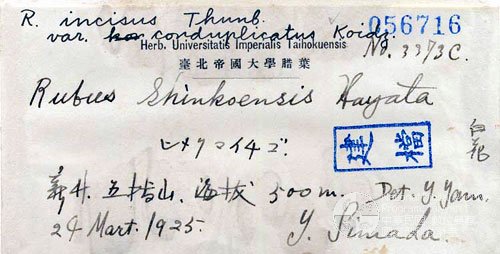 R. incisus Thunb.
var. conduplicatus Koidz.
056716
Herb. Universitatis Imperialis Taihokuensis
No. 3373C.
臺北帝國大學腊葉
Rubus Shinkoensis Hayata
ヒメクマイチゴ.
建檔
白花
新竹. 五指山. 海拔 500m. Det. Y. Yam.
24 Mart. 1925. Y. Simada.